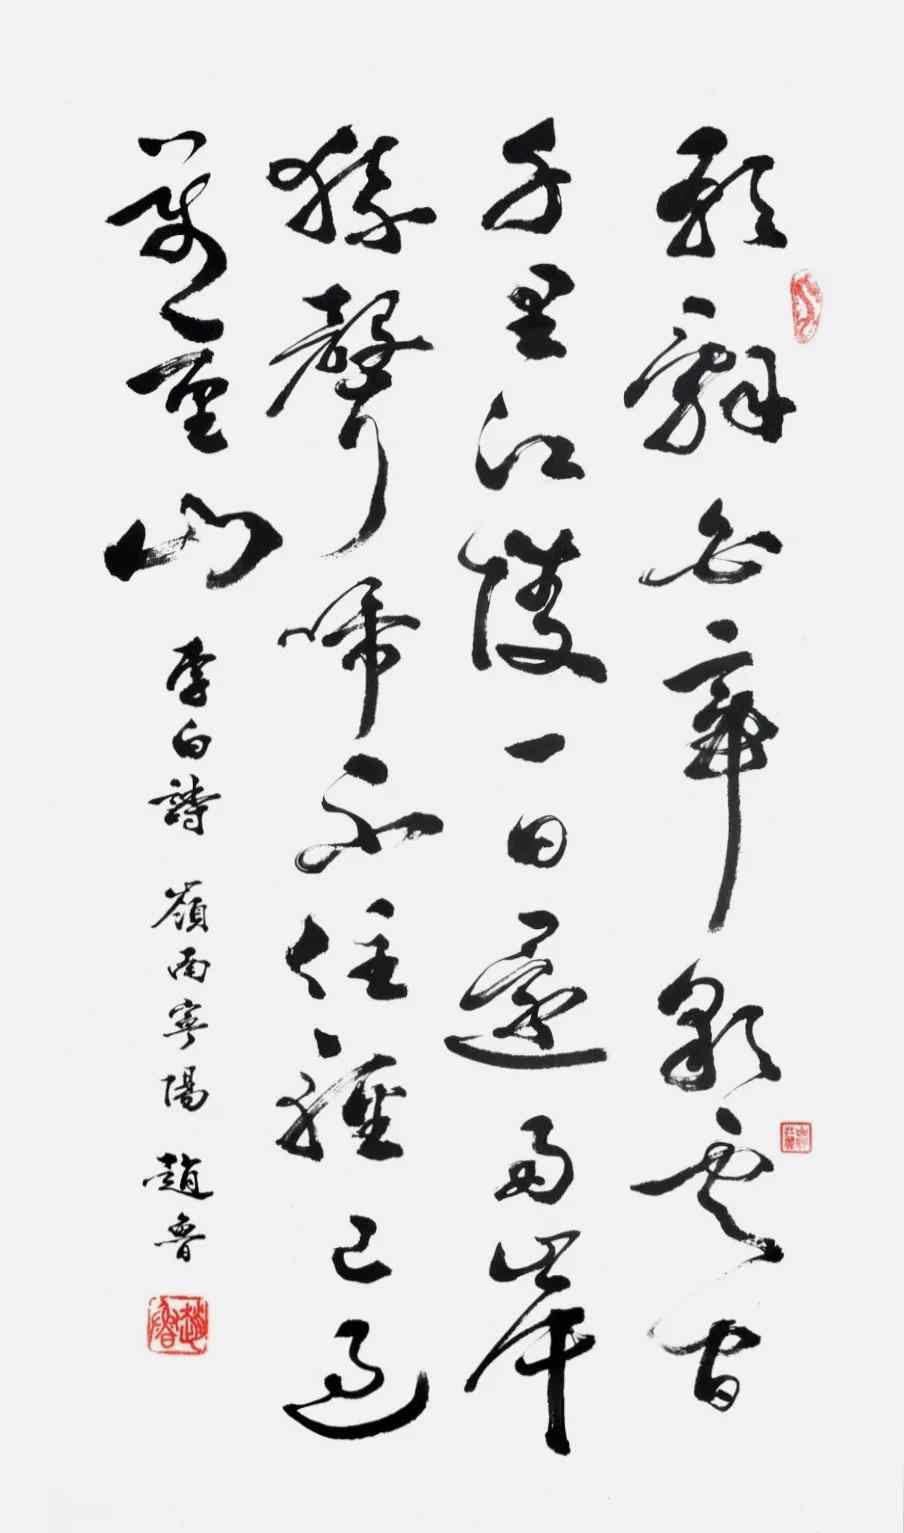 朝辭白帝彩雲間
千里江陵一日還兩岸
猿聲啼不住輕已過
萬重山 李白詩 嶺南寧陽 趙魯
趙魯